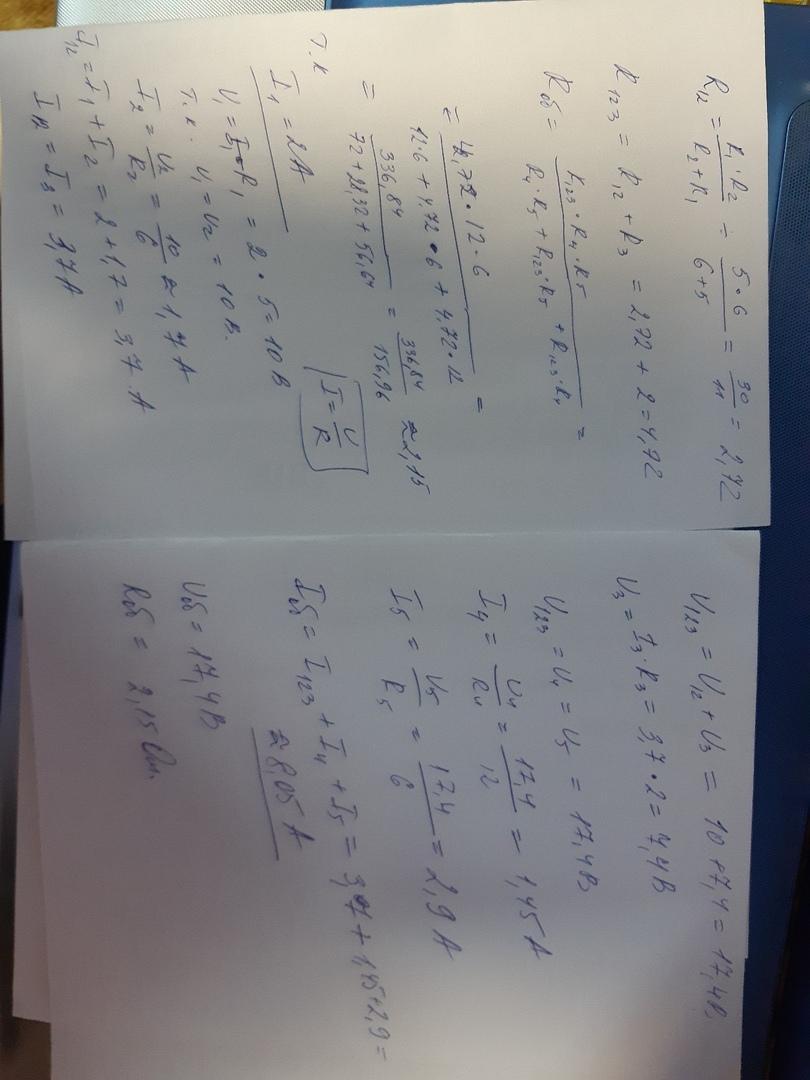 R₁₂ = R₁·R₂ / R₂+R₁ = 5·6 / 6+5 = 30/11 = 2,72
R₁₂₃ = R₁₂ + R₃ = 2,72 + 2 = 4,72
Rоб = R₁₂₃·R₄·R₅ / R₄·R₅ + R₁₂₃·R₅ + R₁₂₃·R₄ =
= 4,72·12·6 / 12·6 + 4,72·6 + 4,72·12 =
= 336,84 / 72+28,32+56,64 = 336,84 / 156,96 ≈ 2,15
т.к I = U/R
I₁ = 2А
U₁ = I₁·R₁ = 2·5 = 10 В
т.к. U₁ = U₂ = 10 В.
I₂ = U₂/R₂ = 10/6 ≈ 1,7 А
I₁₂ = I₁ + I₂ = 2 + 1,7 = 3,7 А
I₁₂ = I₃ = 3,7 А
U₁₂₃ = U₁₂ + U₃ = 10 + 7,4 = 17,4 В,
U₃ = I₃·R₃ = 3,7·2 = 7,4 В
U₁₂₃ = U₄ = U₅ = 17,4 В
I₄ = U₄/R₄ = 17,4/12 = 1,45 А
I₅ = U₅/R₅ = 17,4/6 = 2,9 А
Iоб = I₁₂₃ + I₄ + I₅ = 3,7 + 1,45 + 2,9 =
≈ 8,05 А
Uоб = 17,4 В
Rоб = 2,15 Ом.